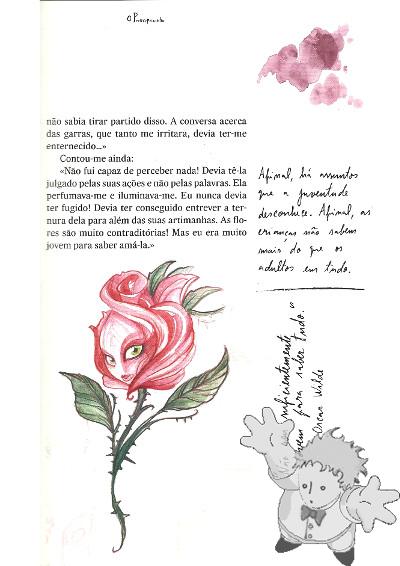 O Principezinho
não sabia tirar partido disso. A conversa acerca
das garras, que tanto me irritara, devia ter-me
enternecido...»
Contou-me ainda:
«Não fui capaz de perceber nada! Devia tê-la
julgado pelas suas ações e não pelas palavras. Ela
perfumava-me e iluminava-me. Eu nunca devia
ter fugido! Devia ter conseguido entrever a ter-
nura dela para além das suas artimanhas. As flo-
res são muito contraditórias! Mas eu era muito
jovem para saber amá-la.»
Afinal, há assuntos
que a juventude
desconhece. Afinal, as
crianças não sabem
mais do que os
adultos em tudo.
"Não sou suficientemente
jovem para saber tudo."
Oscar Wilde